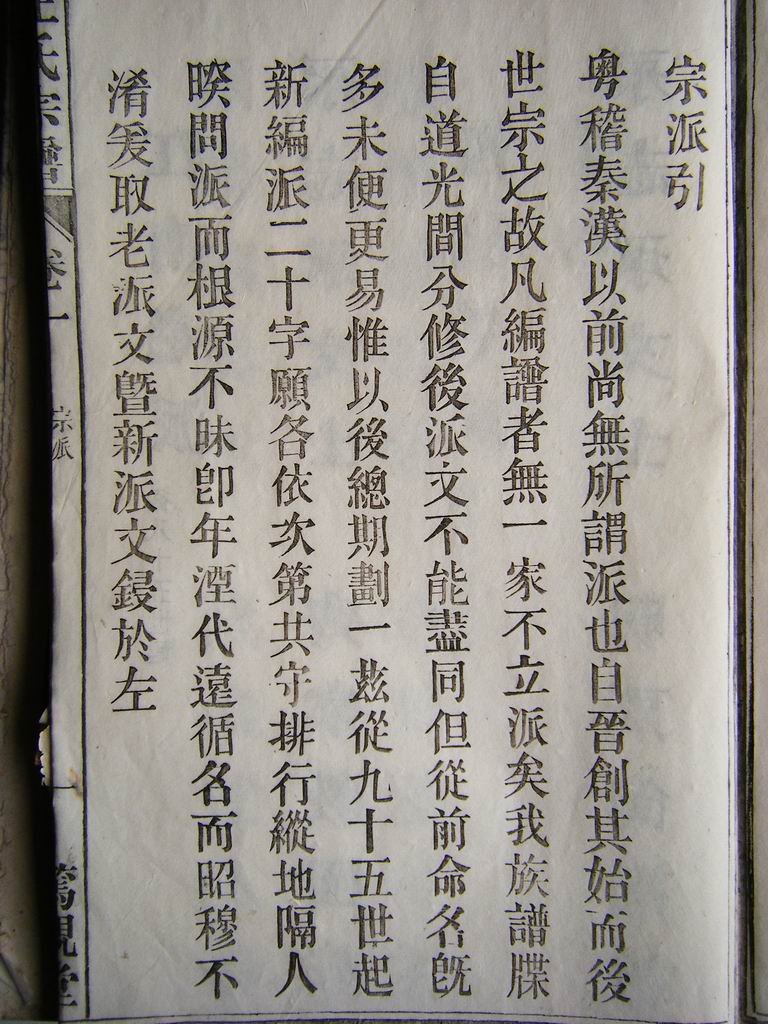 宗派引
粤稽秦漢以前尚無所謂派也自晉創其始而後
世宗之故凡編譜者無一家不立派矣我族譜牒
自道光間分修後派文不能盡同但從前命名既
多未便更易惟以後總期劃一茲從九十五世起
新編派二十字願各依次第共守排行縱地隔人
暌問派而根源不昧即年湮代遠循名而昭穆不
淆爰取老派文暨新派文鋟於左
氏宗譜
卷一
宗派
篤親堂